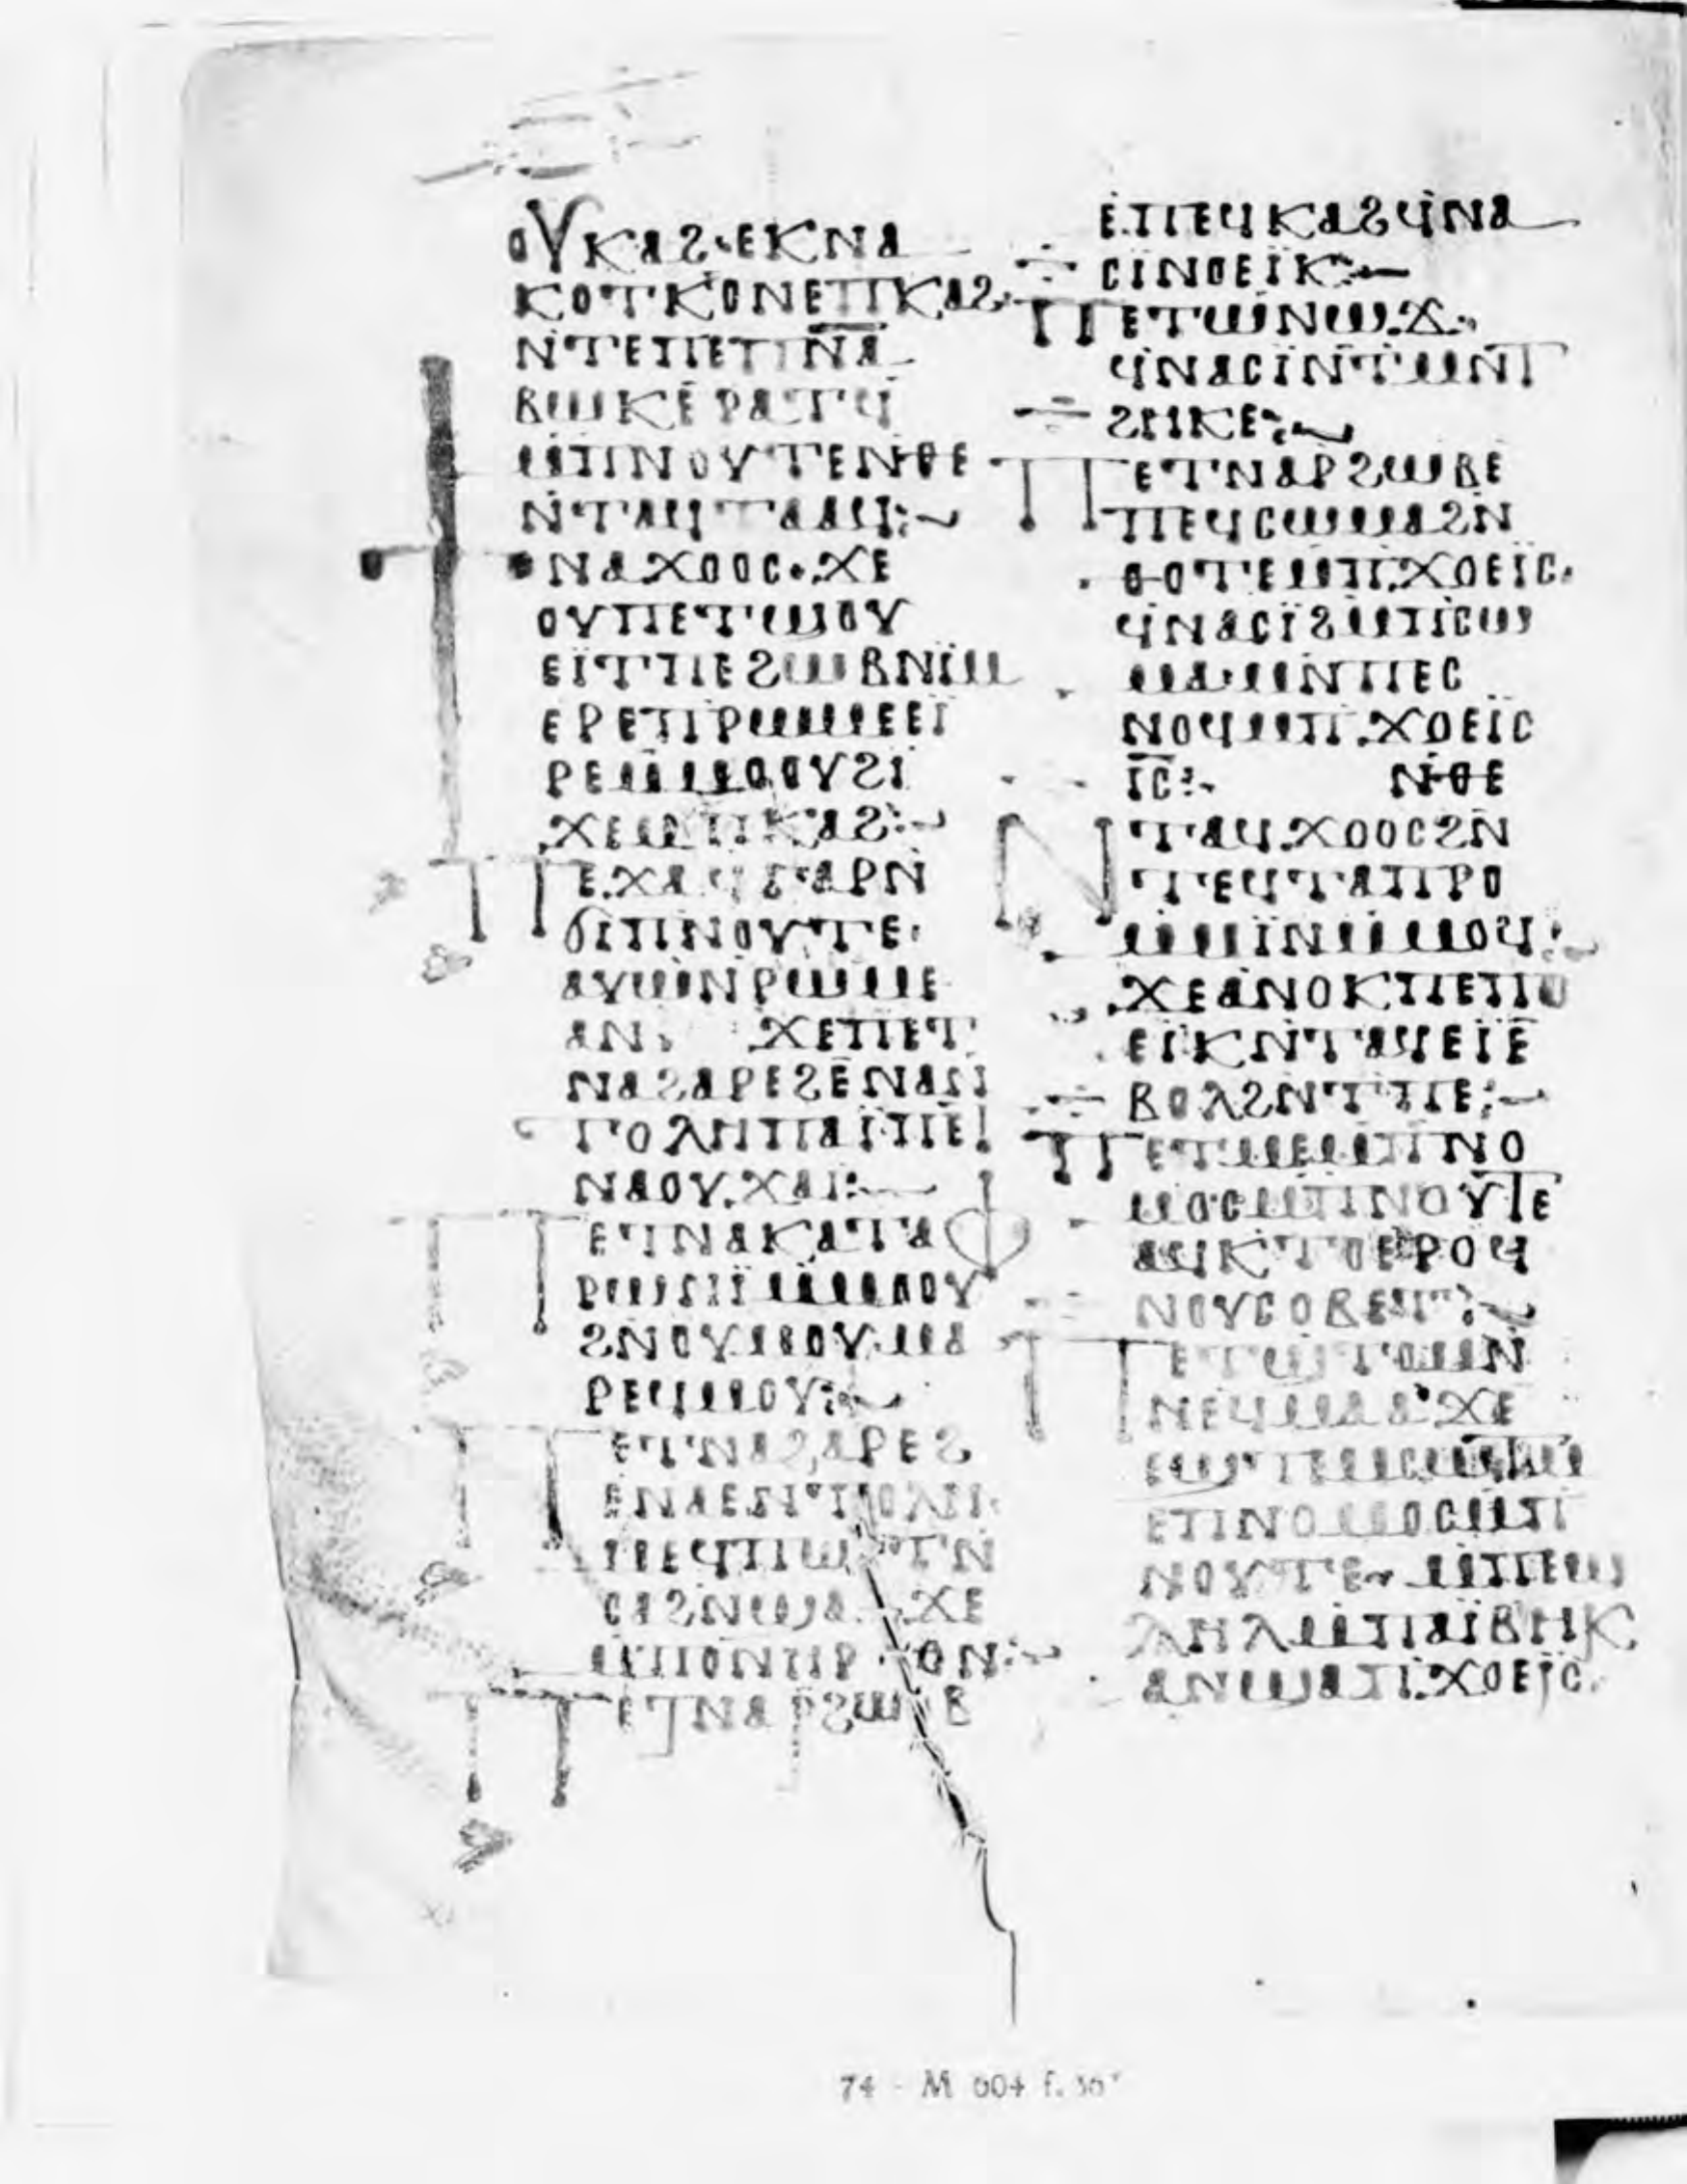 ⲟⲩⲕⲁϩ·ⲉⲕⲛⲁ
ⲕⲟⲧⲕⲟⲛⲉⲡⲕⲁϩ·
ⲛ̇ⲧⲉⲡⲉⲡ̅ⲛ̅ⲁ̅
ⲃⲱⲕⲉ̇ⲣⲁⲧϥ̇
ⲙ̇ⲡⲛⲟⲩⲧⲉⲛ̇ⲑⲉ
ⲛ̇ⲧⲁϥⲧⲁⲁϥ:~
ⲛⲁϫⲟⲟⲥ·ϫⲉ
ⲟⲩⲡⲉⲧϣⲟⲩ
ⲉⲓ̈ⲧⲡⲉϩⲱⲃⲛⲓ̈ⲙ
ⲉⲣⲉⲡⲣⲱⲙⲉⲉⲓ̈
ⲣⲉⲙ̇ⲙⲟⲟⲩϩⲓ
ϫⲉⲙⲡⲕⲁϩ:~
ⲡⲉϫⲁϥ ⲅⲁⲣⲛ̇
ϭⲓⲡⲛⲟⲩⲧⲉ·
ⲁⲩⲱⲛ̇ⲣⲱⲙⲉ
ⲁⲛ· ϫⲉⲡⲉⲧ
ⲛⲁϩⲁⲣⲉϩⲉ̇ⲛⲁⲉⲛ
ⲧⲟⲗⲏⲡⲁⲓ̈ⲡⲉⲧ
ⲛⲁⲟⲩϫⲁⲓ:—
ⲡⲉⲧⲛⲁⲕⲁⲧⲁ
ⲫⲣⲱⲛⲓ̈ ⲙ̇ⲙⲟⲟⲩ
ϩⲛⲟⲩⲙⲟⲩⲙⲁ
ⲣⲉϥⲙⲟⲩ:~
ⲡⲉⲧⲛⲁϩⲁⲣⲉϩ
ⲉⲛⲁⲉⲛⲧⲟⲗⲏ·
ⲛⲉϥⲡⲱⲧⲛ̇
ⲥⲁϩⲛϣⲁϫⲉ
ⲙ̇ⲡⲟⲛⲏⲣⲟⲛ:~
ⲡⲉⲧⲛⲁⲣϩⲱⲃ
ⲉ̇ⲡⲉϥⲕⲁϩϥ̇ⲛⲁ
ⲥⲓⲛⲟⲉⲓ̈ⲕ:—
ⲡⲉⲧϣⲛ̇ϣϫ·
ϥ̇ⲛⲁⲥⲓⲛ̇ⲧⲙⲛⲧ
ϩⲏⲕⲉ:~
ⲡⲉⲧⲛⲁⲣϩⲱⲃⲉ
ⲡⲉϥⲥⲱⲙⲁϩⲛ̇
ⲑⲟⲧⲉⲙ̇ⲡϫⲟⲉⲓ̈ⲥ·
ϥ̇ⲛⲁⲥⲓ̈ϩⲙ̇ⲡⲥⲱ
ⲙⲁ·ⲙⲛ̇ⲡⲉⲥ
ⲛⲟϥⲙ̇ⲡϫⲟⲉⲓ̈ⲥ
ⲓ̅ⲥ̅:~ ⲛ̇ⲑⲉ
ⲛⲧⲁϥϫⲟⲟⲥϩⲛ̇
ⲧⲉϥⲧⲁⲡⲣⲟ
ⲙ̇ⲙⲓ̈ⲛⲙ̇ⲙⲟϥ:~
ϫⲉⲁ̇ⲛⲟⲕⲡⲉⲡⲟ
ⲉⲓ̈ⲕⲛ̇ⲧⲁϥⲉⲓⲉ̇
ⲃⲟⲗϩⲛ̇ⲧⲡⲉ:~
ⲡⲉⲧⲙⲉⲙ̇ⲡⲛⲟ
ⲙⲟⲥⲙ̇ⲡⲛⲟⲩⲧⲉ
ⲁϥⲕⲧⲟⲉⲣⲟϥ
ⲛⲟⲩⲥⲟⲃⲉⲧ:~
ⲡⲉⲧϣⲧⲟⲙⲛ̇
ⲛⲉϥⲙⲁⲁϫⲉ
ⲉϣⲧⲉⲙⲥⲱⲧⲙ
ⲉⲡⲛⲟⲙⲟⲥⲙ̇ⲡ
ⲛⲟⲩⲧⲉ~ⲙ̇ⲡⲉϣ
ⲗⲏⲗⲙ̇ⲡⲁⲓ̈ⲃⲏⲕ
ⲁⲛϣⲁⲡϫⲟⲉⲓ̈ⲥ·
74 - M 604 f.